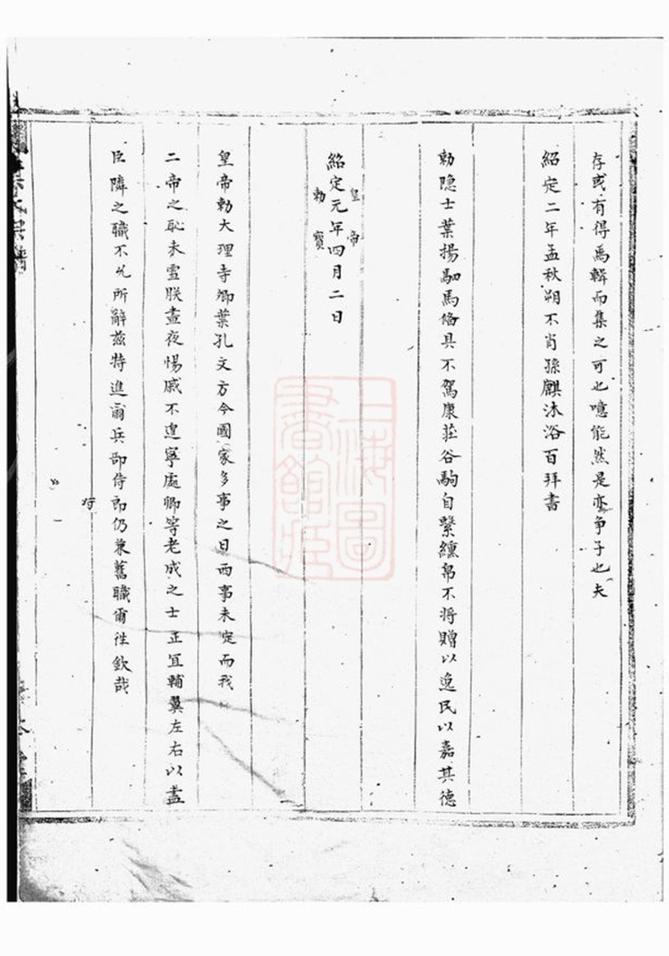 存或有得焉輯而集之可也噫能然是亦争子也夫
紹定二年孟秋朔不肖孫麒沐浴百拜書
勅隐士葉揚駟馬俻具不駕康莊谷駒自縶纁帛不将贈以逸民以嘉其德
紹定元年四月二日
皇帝
勅寳
皇帝勅大理寺卿葉孔文方今國家多事之日西事未定而我
二帝之恥未雪朕晝夜惕戚不遑寧處卿等老成之士正宜輔翼左右以盡
臣隣之職不允所辭兹特進爾兵部侍郎仍兼舊職爾徃欽哉
氏宗譜
上海圖書館藏